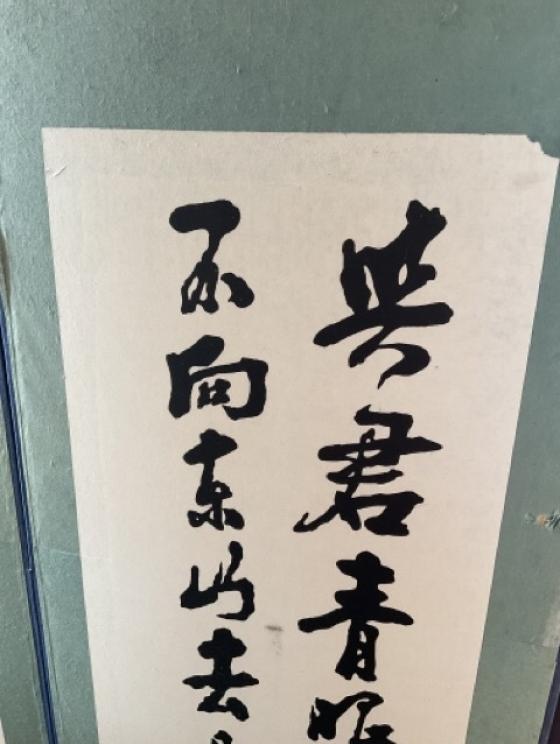 與君青眼
不向東山去